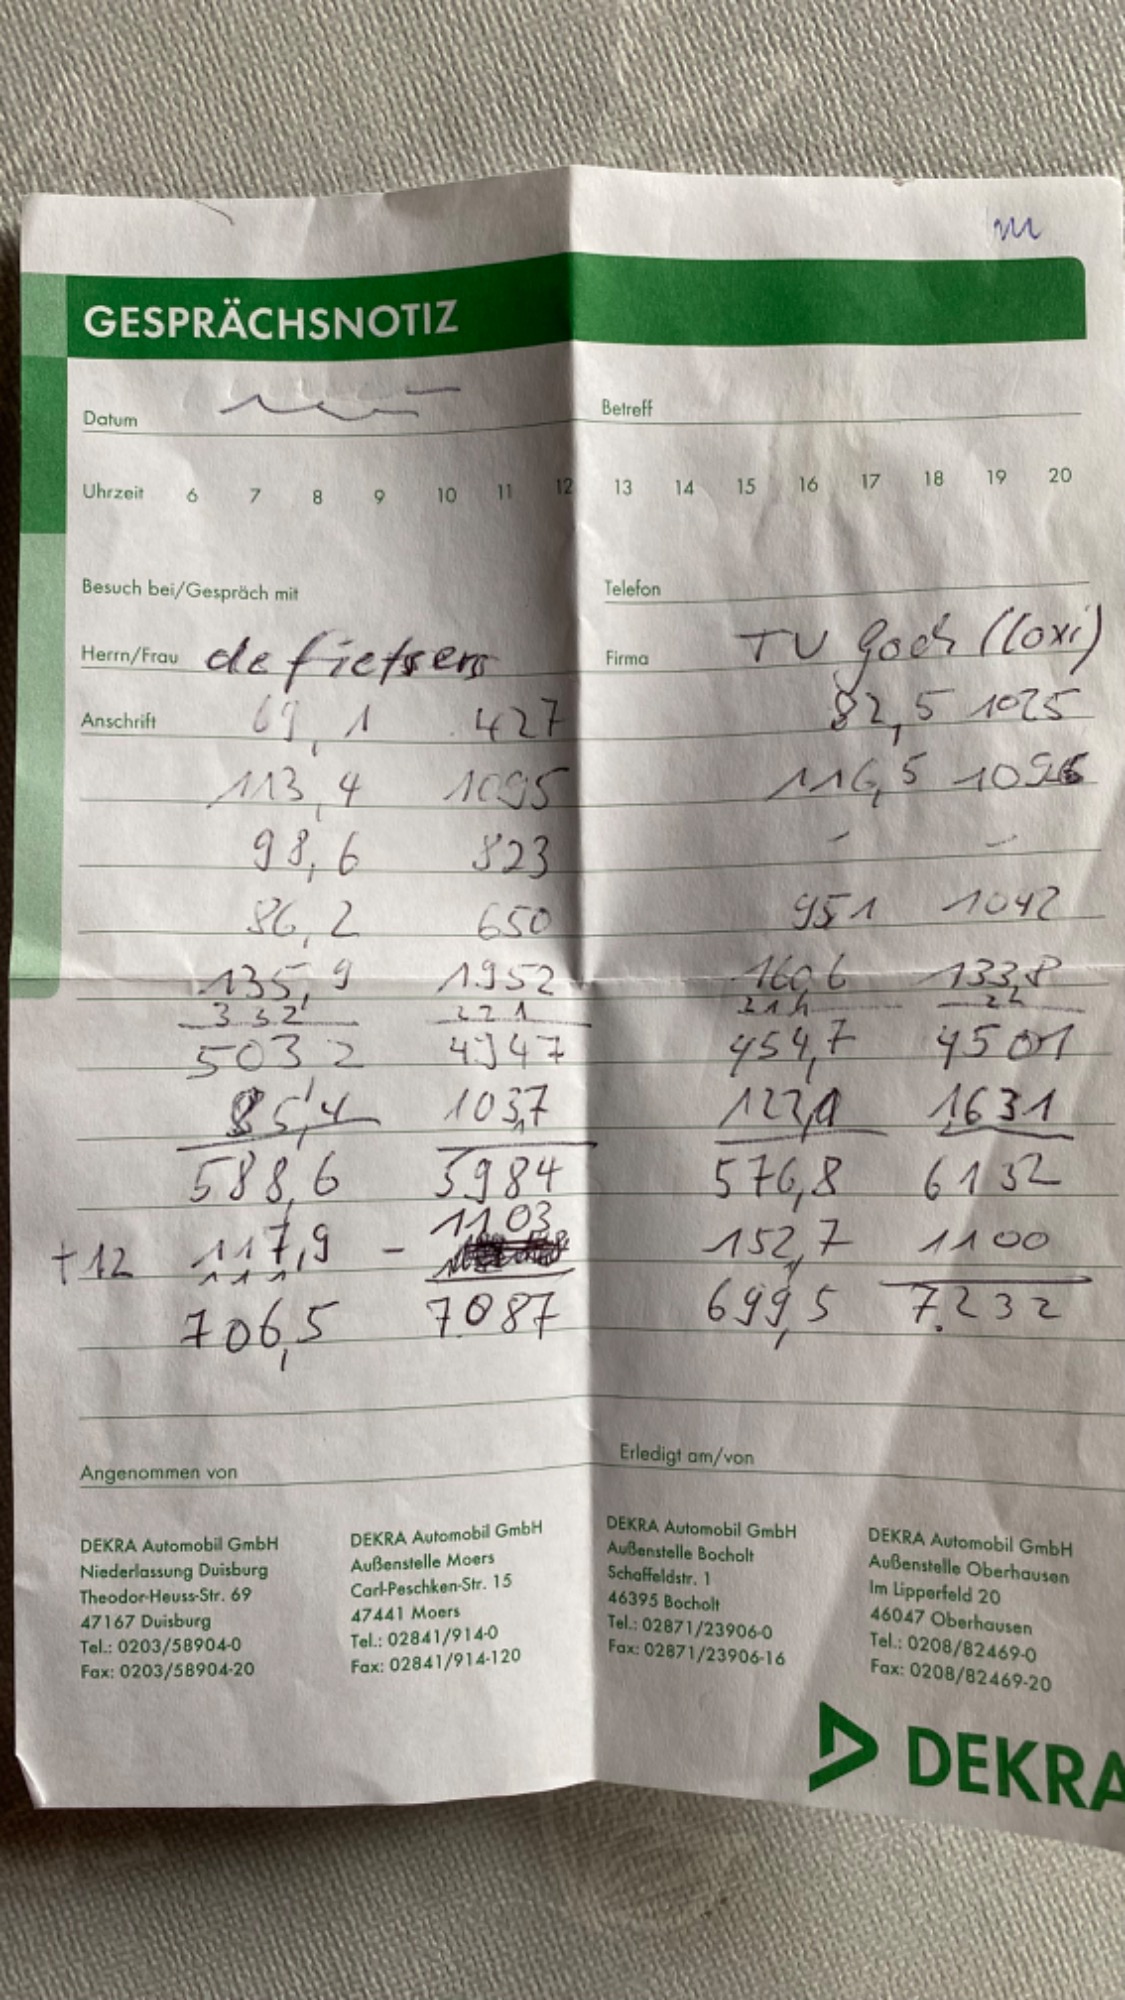 m
GESPRÄCHSNOTIZ
Datum
Betreff
Uhrzeit 6 7 8 9 10 11 12 13 14 15 16 17 18 19 20
Besuch bei/Gespräch mit
Telefon
Herrn/Frau de fietsers
Firma TV Goch (loxi)
Anschrift 69,1 427 82,5 1025
113,4 1095 116,5 1096
98,6 823 - -
86,2 650 951 1042
135,9 1952 160,6 133,8
332 221 21h 2h
503,2 4947 454,7 4501
85,4 1037 122,1 1631
588,6 5984 576,8 6132
1103
+12 117,9 - 152,7 1100
1 1 1
706,5 7.087 699,5 7.232
Angenommen von
Erledigt am/von
DEKRA Automobil GmbH
Niederlassung Duisburg
Theodor-Heuss-Str. 69
47167 Duisburg
Tel.: 0203/58904-0
Fax: 0203/58904-20
DEKRA Automobil GmbH
Außenstelle Moers
Carl-Peschken-Str. 15
47441 Moers
Tel.: 02841/914-0
Fax: 02841/914-120
DEKRA Automobil GmbH
Außenstelle Bocholt
Schaffeldstr. 1
46395 Bocholt
Tel.: 02871/23906-0
Fax: 02871/23906-16
DEKRA Automobil GmbH
Außenstelle Oberhausen
Im Lipperfeld 20
46047 Oberhausen
Tel.: 0208/82469-0
Fax: 0208/82469-20
DEKRA